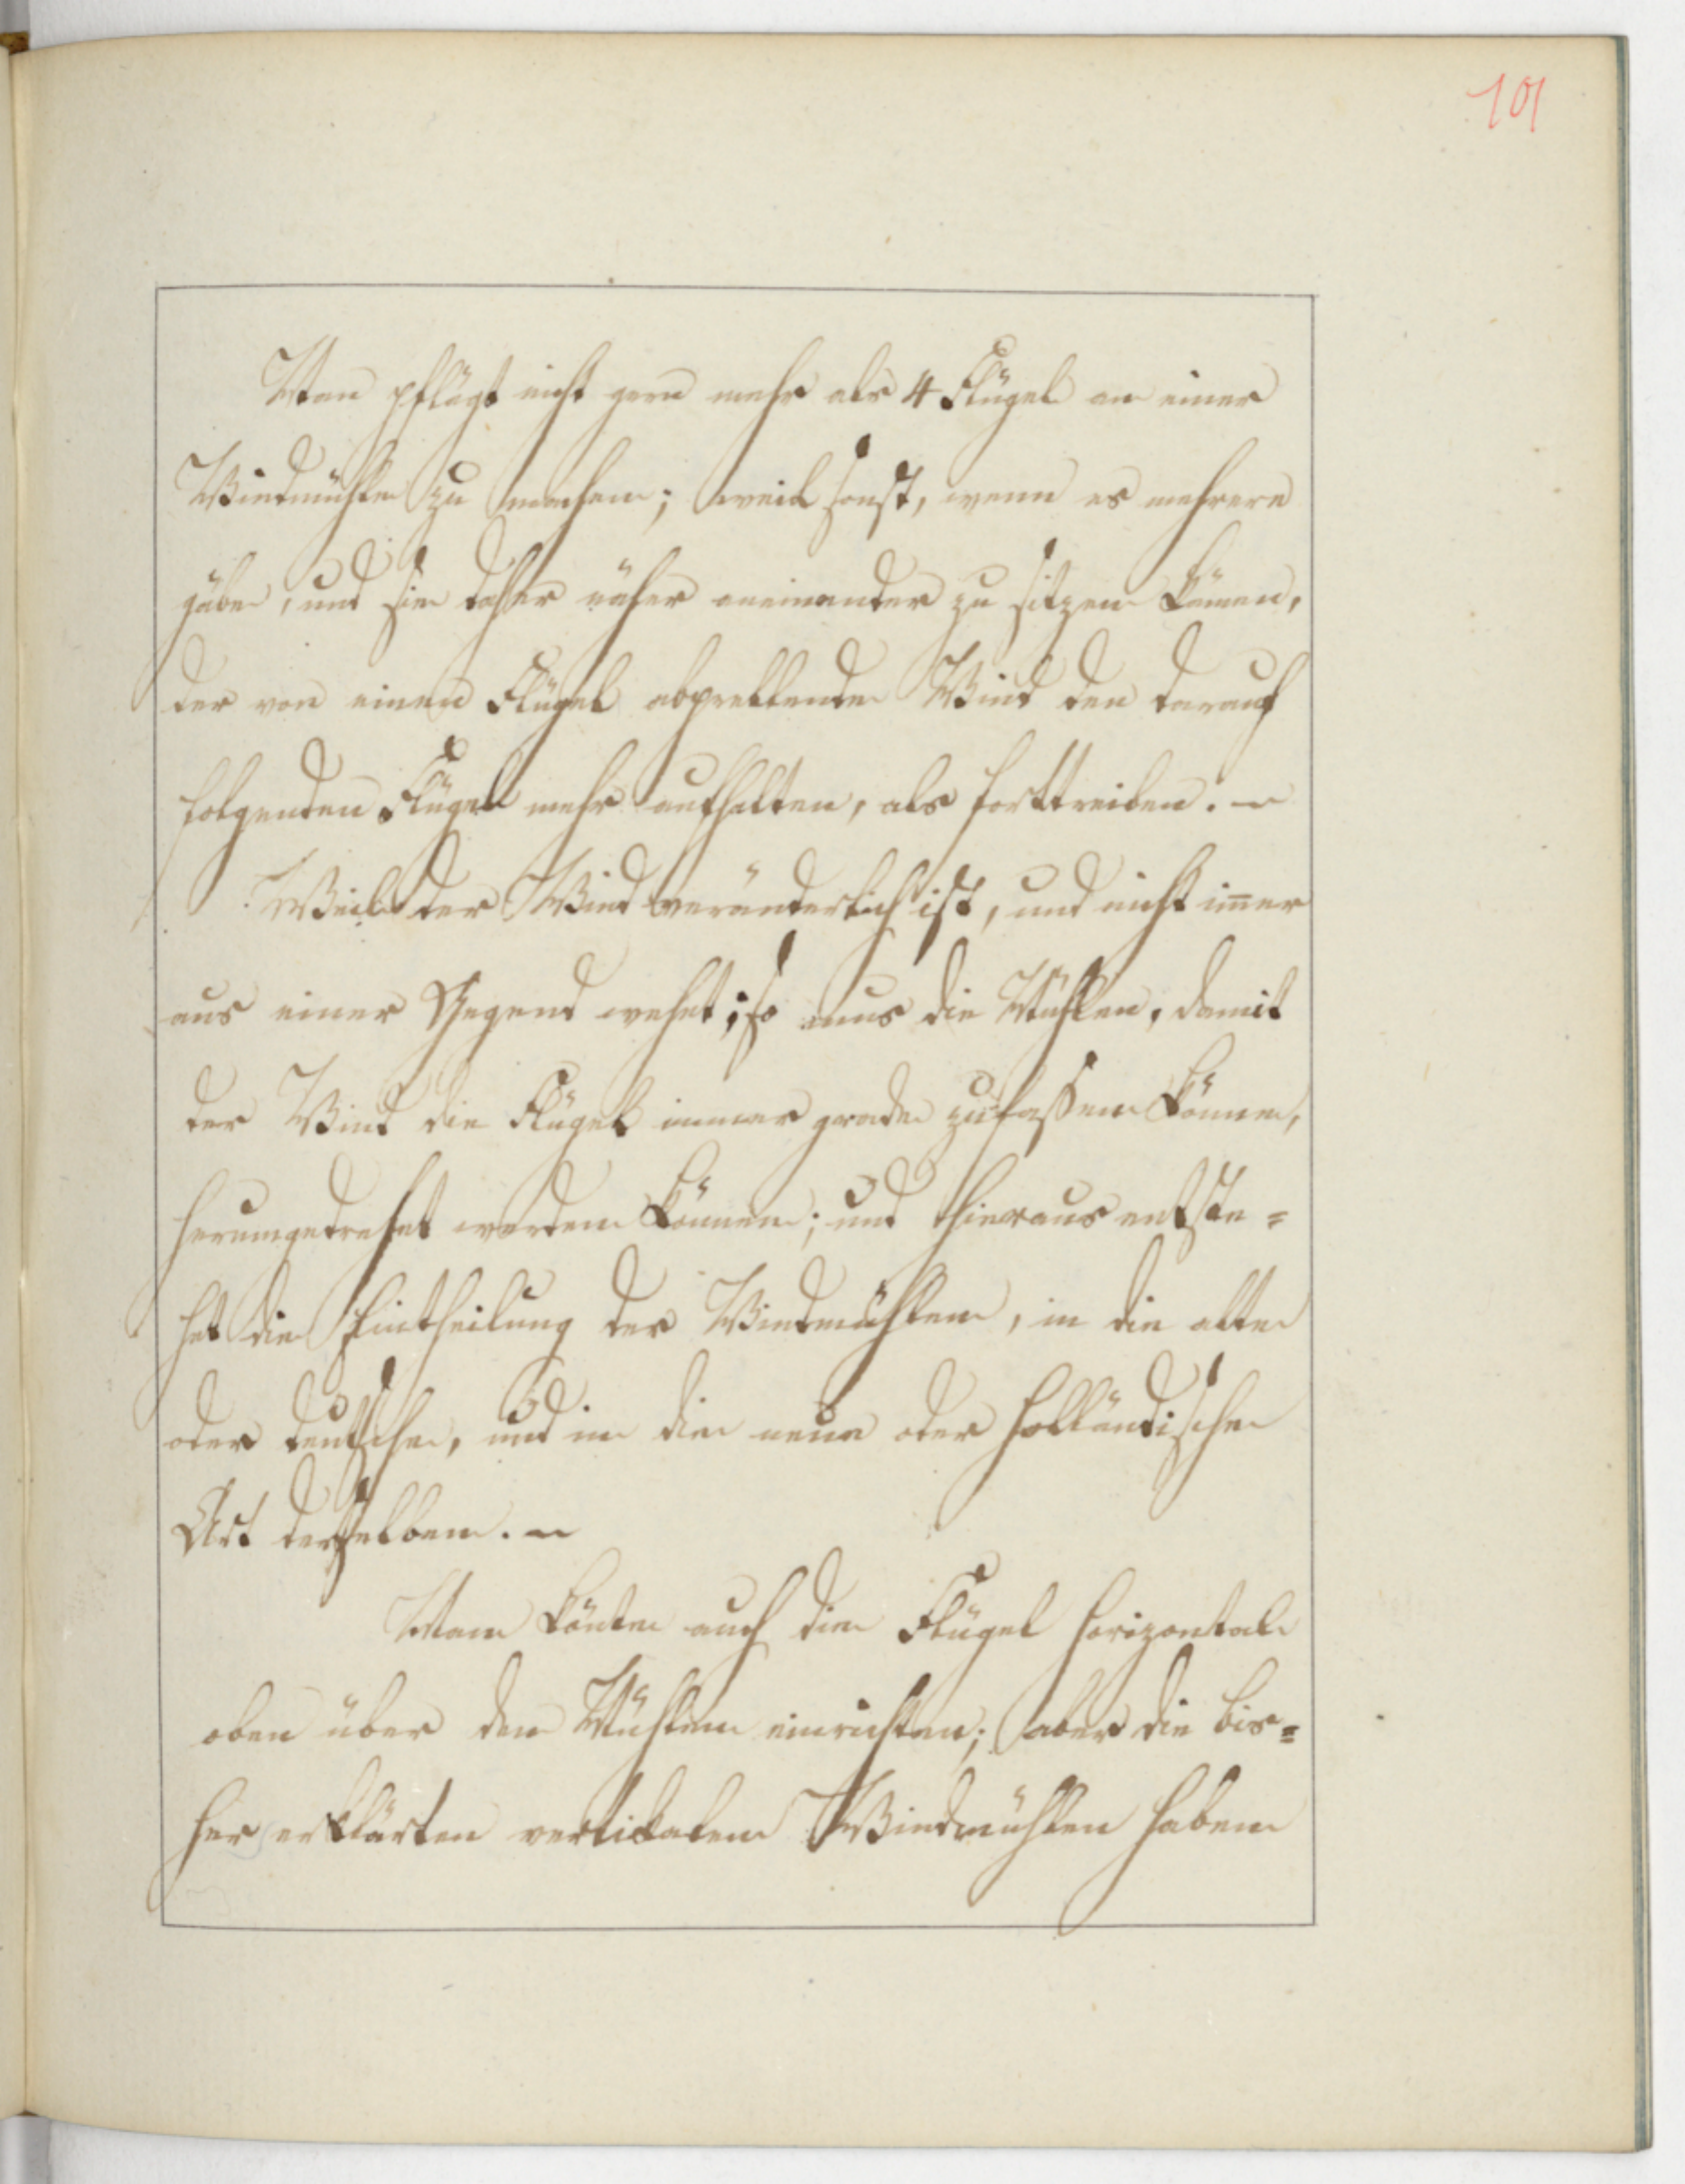 101
Man pflägt nicht gern mehr als 4 Flügel an einer
Windmühle zu machen; weil sonst, wenn es mehrere
gäbe, und sie daher näher aneinander zu sitzen kämen,
der von einen Flügel abprellende Wind den darauf
folgenden Flügel mehr aufhalten, als forttreiben. –
Weil der Wind veränderlich ist, und nicht im̄er
aus einer Gegend wehet; so mus die Mühlen, damit
der Wind die Flügel immer grade zu fassen könne,
herumgedrehet werden können; und hieraus entste=
het die Eintheilung der Windmühlen, in die alte
oder deutsche, und in die neue oder holländische
Art derselben. –
Man könte auch die Flügel horizontal
oben über den Mühlen einrichten; aber die bis=
her erklärten vertikalen Windmühlen haben